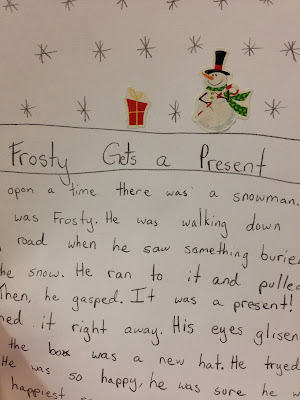 Frosty Gets a Present
opon a time there was a snowman.
was Frosty. He was walking down
road when he saw something burie
he snow. He ran to it and pulle
Then, he gasped. It was a present!
ned it right away. His eyes glisen
the box was a new hat. He tryed
He was so happy, he was sure he w
happiest s